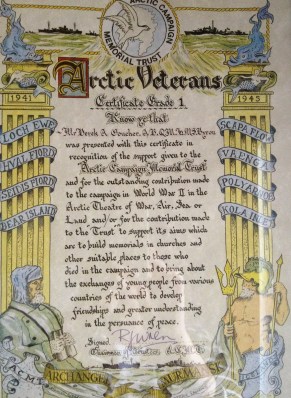 ARCTIC CAMPAIGN
MEMORIAL TRUST
Arctic Veterans
1941
1945
Certificate Grade 1
Know ye that
was presented with this certificate in
recognition of the support given to the
Arctic Campaign Memorial Trust
and for the outstanding contribution made
to the campaign in World War II in the
Arctic Theatre of War, Air, Sea or
Land and/or for the contribution made
to the Trust to support its aims which
are to build memorials in churches and
other suitable places to those who
died in the campaign and to bring about
the exchanges of young people from various
countries of the world to develop
friendships and greater understanding
in the persuance of peace.
Signed
Chairman of Trustees
LOCH EWE
HVALFIORD
SEIDISFIORD
BEAR ISLAND
SCAPA FLOW
VAENGA
A.C.M.T.
ARCHANGEL
MURMANSK